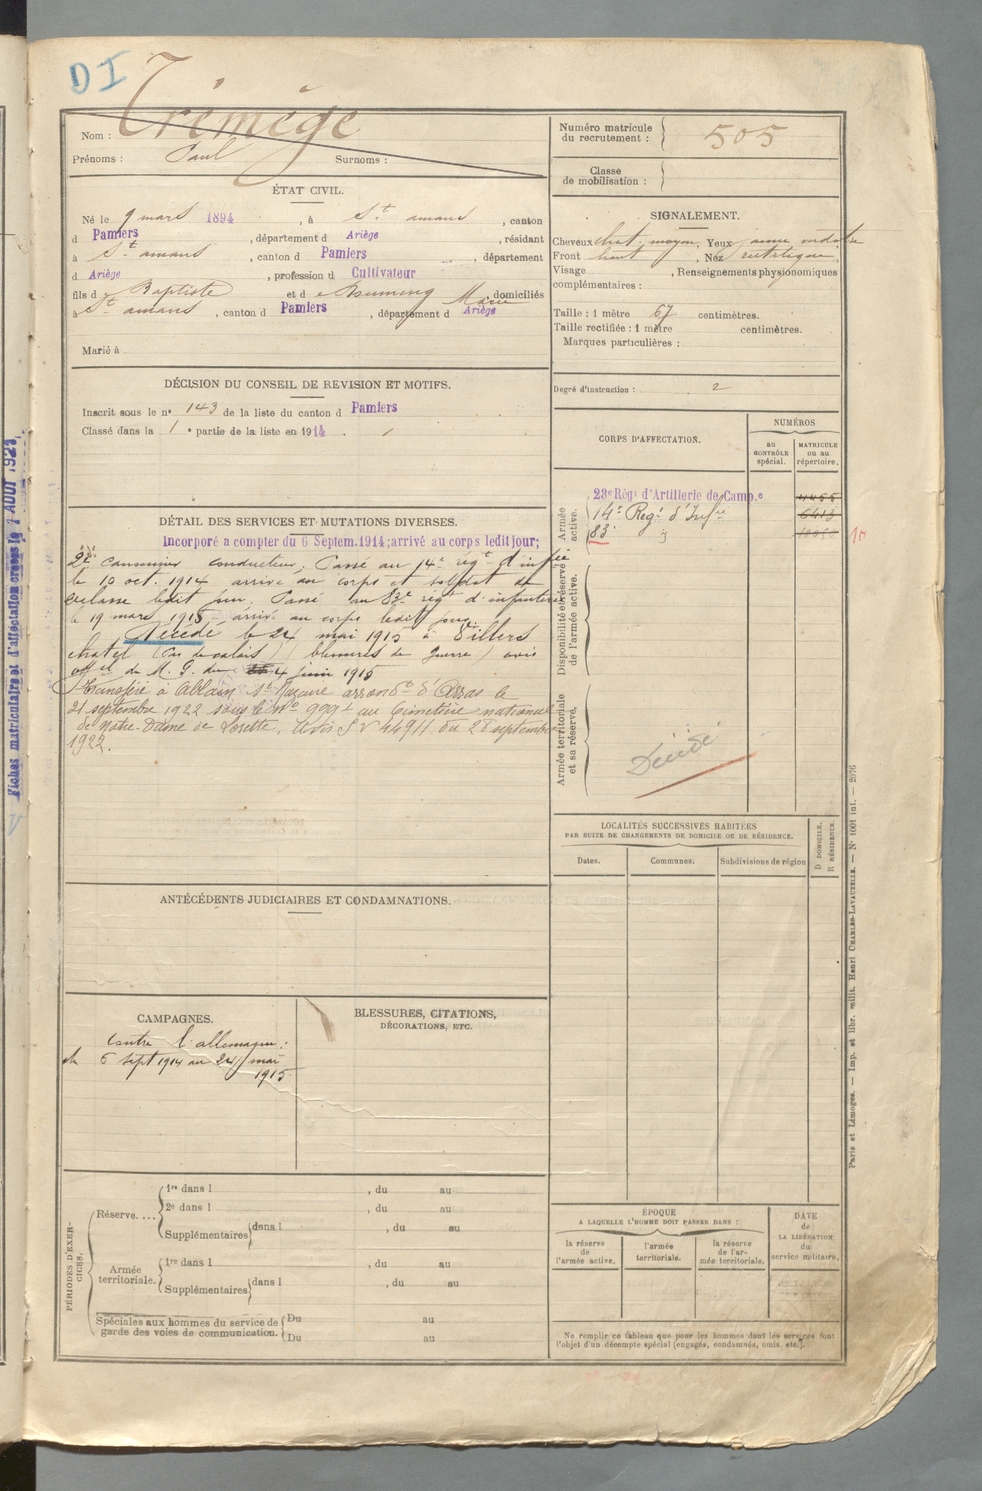 DI
Nom : Trémège
Prénoms : Paul Surnoms :
ÉTAT CIVIL.
Né le 9 mars 1894, à St amans, canton
d Pamiers, département d Ariège, résidant
à St amans, canton d Pamiers, département
d Ariège, profession d Cultivateur
fils d Baptiste et d e Marie domiciliés
à St amans, canton d Pamiers, département d Ariège
Marié à
DÉCISION DU CONSEIL DE REVISION ET MOTIFS.
Inscrit sous le n° 143 de la liste du canton d Pamiers
Classé dans la 1e partie de la liste en 1914
DÉTAIL DES SERVICES ET MUTATIONS DIVERSES.
Incorporé a compter du 6 Septem. 1914; arrivé au corps ledit jour;
2e canonnier conducteur, Passé au 14e régt d'infie
le 10 oct. 1914 arrivé au corps et soldat de
2e classe ledit jour. Passé au 83e régt d'infanterie
le 19 mars 1915 arrivé au corps ledit jour
Décédé le 24 mai 1915 à Villers
chatel (Pas de calais) (blessures de guerre) avis
off el de M. G. du 4 juin 1915
Transféré à Ablain St Nazaire arrondt d'Arras le
21 septembre 1922 sous le No 999 au Cimetière national
de Notre-Dame de Lorette, Avis S V 44911 du 28 septembre
1922.
ANTÉCÉDENTS JUDICIAIRES ET CONDAMNATIONS.
CAMPAGNES.
Contre l'allemagne :
du 6 sept 1914 au 24 mai
1915
BLESSURES, CITATIONS,
DÉCORATIONS, ETC.
PÉRIODES D'EXERCICES.
Réserve....
1re dans l , du au
2e dans l , du au
Supplémentaires dans l , du au
Armée
territoriale.
1re dans l , du au
Supplémentaires dans l , du au
Spéciales aux hommes du service de
garde des voies de communication.
Du au
Du au
Numéro matricule
du recrutement : 505
Classe
de mobilisation :
SIGNALEMENT.
Cheveux chat. moyen, Yeux jaune verdâtre
Front haut, Nez rectiligne,
Visage , Renseignements physionomiques
complémentaires :
Taille : 1 mètre 67 centimètres.
Taille rectifiée : 1 mètre centimètres.
Marques particulières :
Degré d'instruction : 2
CORPS D'AFFECTATION.
NUMÉROS
au
CONTRÔLE
spécial.
MATRICULE
ou au
répertoire.
Armée
active.
23e Régt d'Artillerie de Camp.e
14e Regt d'Infie 6413
83e
10
Disponibilité et réserve
de l'armée active.
Armée territoriale
et sa réserve.
Décédé
LOCALITÉS SUCCESSIVES HABITÉES
PAR SUITE DE CHANGEMENTS DE DOMICILE OU DE RÉSIDENCE.
Dates. Communes. Subdivisions de région
D DOMICILE.
R RÉSIDENCE.
ÉPOQUE
A LAQUELLE L'HOMME DOIT PASSER DANS :
la réserve
de
l'armée active.
l'armée
territoriale.
la réserve
de l'ar-
mée territoriale.
DATE
de
LA LIBÉRATION
du
service militaire.
Ne remplir ce tableau que pour les hommes dont les services font
l'objet d'un décompte spécial (engagés, condamnés, omis, etc.).
Paris et Limoges. — Imp. et libr. milit. Henri CHARLES-LAVAUZELLE. — N° 1001 int. — 2976
Fiches matriculaire et d'affectation créées le 1 AOUT 1921